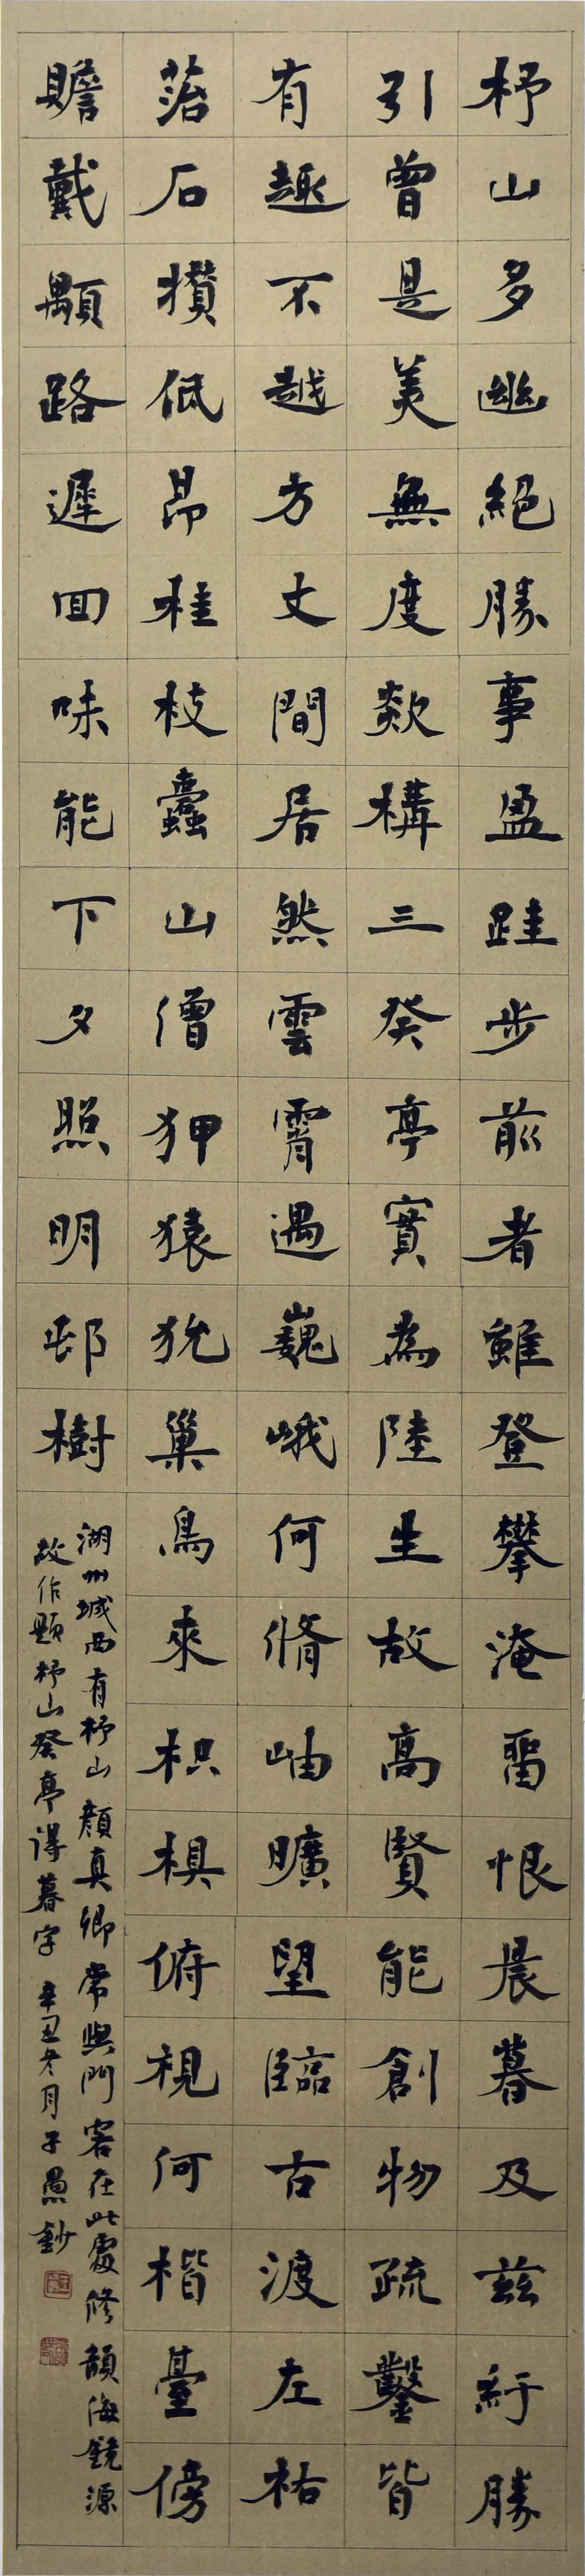 杼山多幽絕勝事盈跬步前者雖登攀淹留恨晨暮及茲紆勝
引曾是美無度欻構三癸亭實為陸生故高賢能創物疏鑿皆
有趣不越方丈間居然雲霄遇巍峨何脩岫曠望臨古渡左祐
菭石攢低昂桂枝蠹山僧狎猿狖巢鳥來枳椇俯視何楷臺傍
瞻戴顒路遲回味能下夕照明邨樹
湖州城西有杼山顏真卿常與門客在此處修韻海鏡源
故作題杼山癸亭得暮字 辛丑冬月子愚鈔